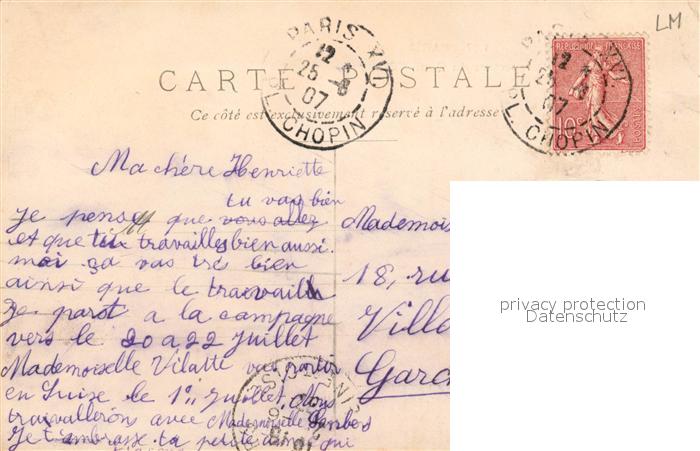 LM
PARIS XVI
12
25 -6
07
PL. CHOPIN
PARIS XVI
12
25 -6
07
PL. CHOPIN
REPUBLIQUE FRANÇAISE
10c
CARTE POSTALE
Ce côté est exclusivement réservé à l'adresse
Ma chère Henriette
tu vas bien
Je pense que vous allez
et que tu travailles bien aussi.
moi ça vas très bien
ainsi que le travaill
Je parot a la campagne
vers le 20 a 22 Juillet
Mademoiselle Vilatte va partir
en Suise le 1er Juillet. Nous
travailleron avec Mademoiselle
Je t'embrasse ta petite amie qui
Mademois
18, ru
Ville
Garc
privacy protection
Datenschutz